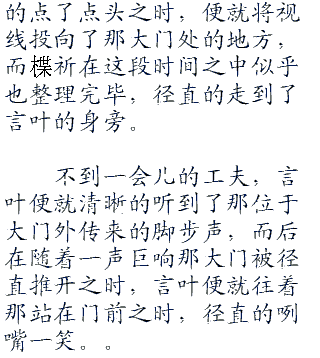 的点了点头之时，便就将视
线投向了那大门处的地方，
而楪祈在这段时间之中似乎
也整理完毕，径直的走到了
言叶的身旁。
不到一会儿的工夫，言
叶便就清晰的听到了那位于
大门外传来的脚步声，而后
在随着一声巨响那大门被径
直推开之时，言叶便就往着
那站在门前之时，径直的咧
嘴一笑。。